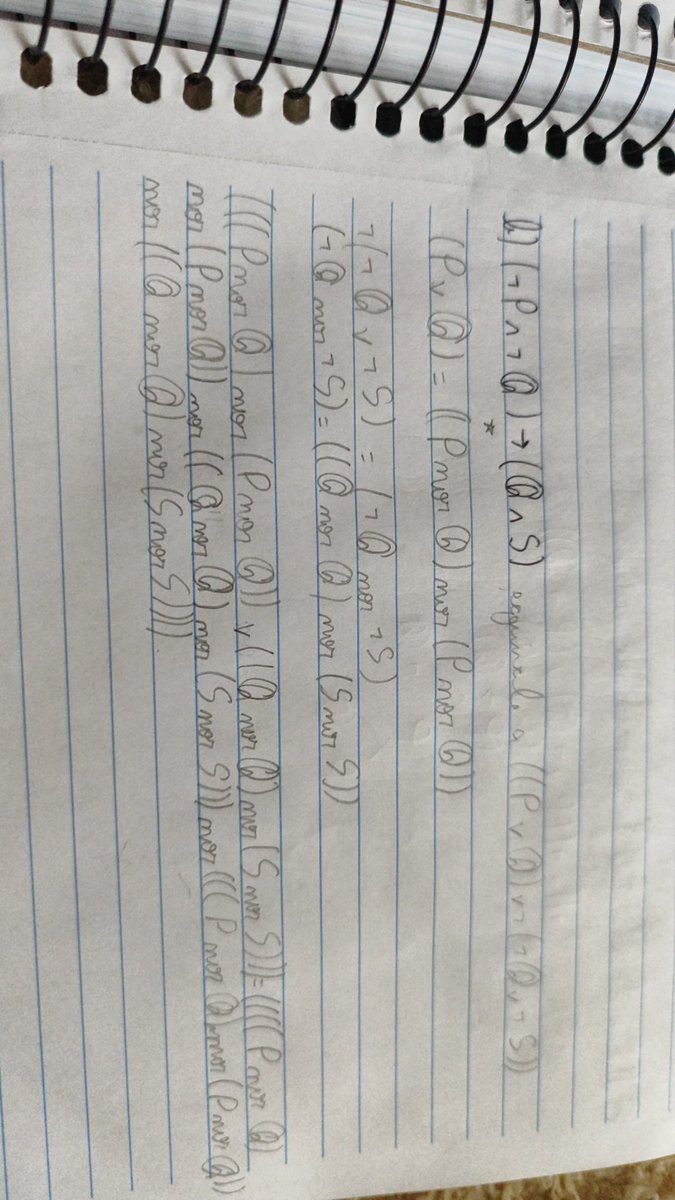 b) (¬P ∧ ¬Q) → (Q ∧ S) equival. a ((P ∨ Q) ∨ ¬(¬Q ∨ ¬S))
*
(P ∨ Q) = ((P nor Q) nor (P nor Q))
¬(¬Q ∨ ¬S) = (¬Q nor ¬S)
(¬Q nor ¬S) = ((Q nor Q) nor (S nor S))
(((P nor Q) nor (P nor Q)) ∨ ((Q nor Q) nor (S nor S))) = ((((P nor Q)
nor (P nor Q)) nor ((Q nor Q) nor (S nor S))) nor (((P nor Q) nor (P nor Q))
nor ((Q nor Q) nor (S nor S))))